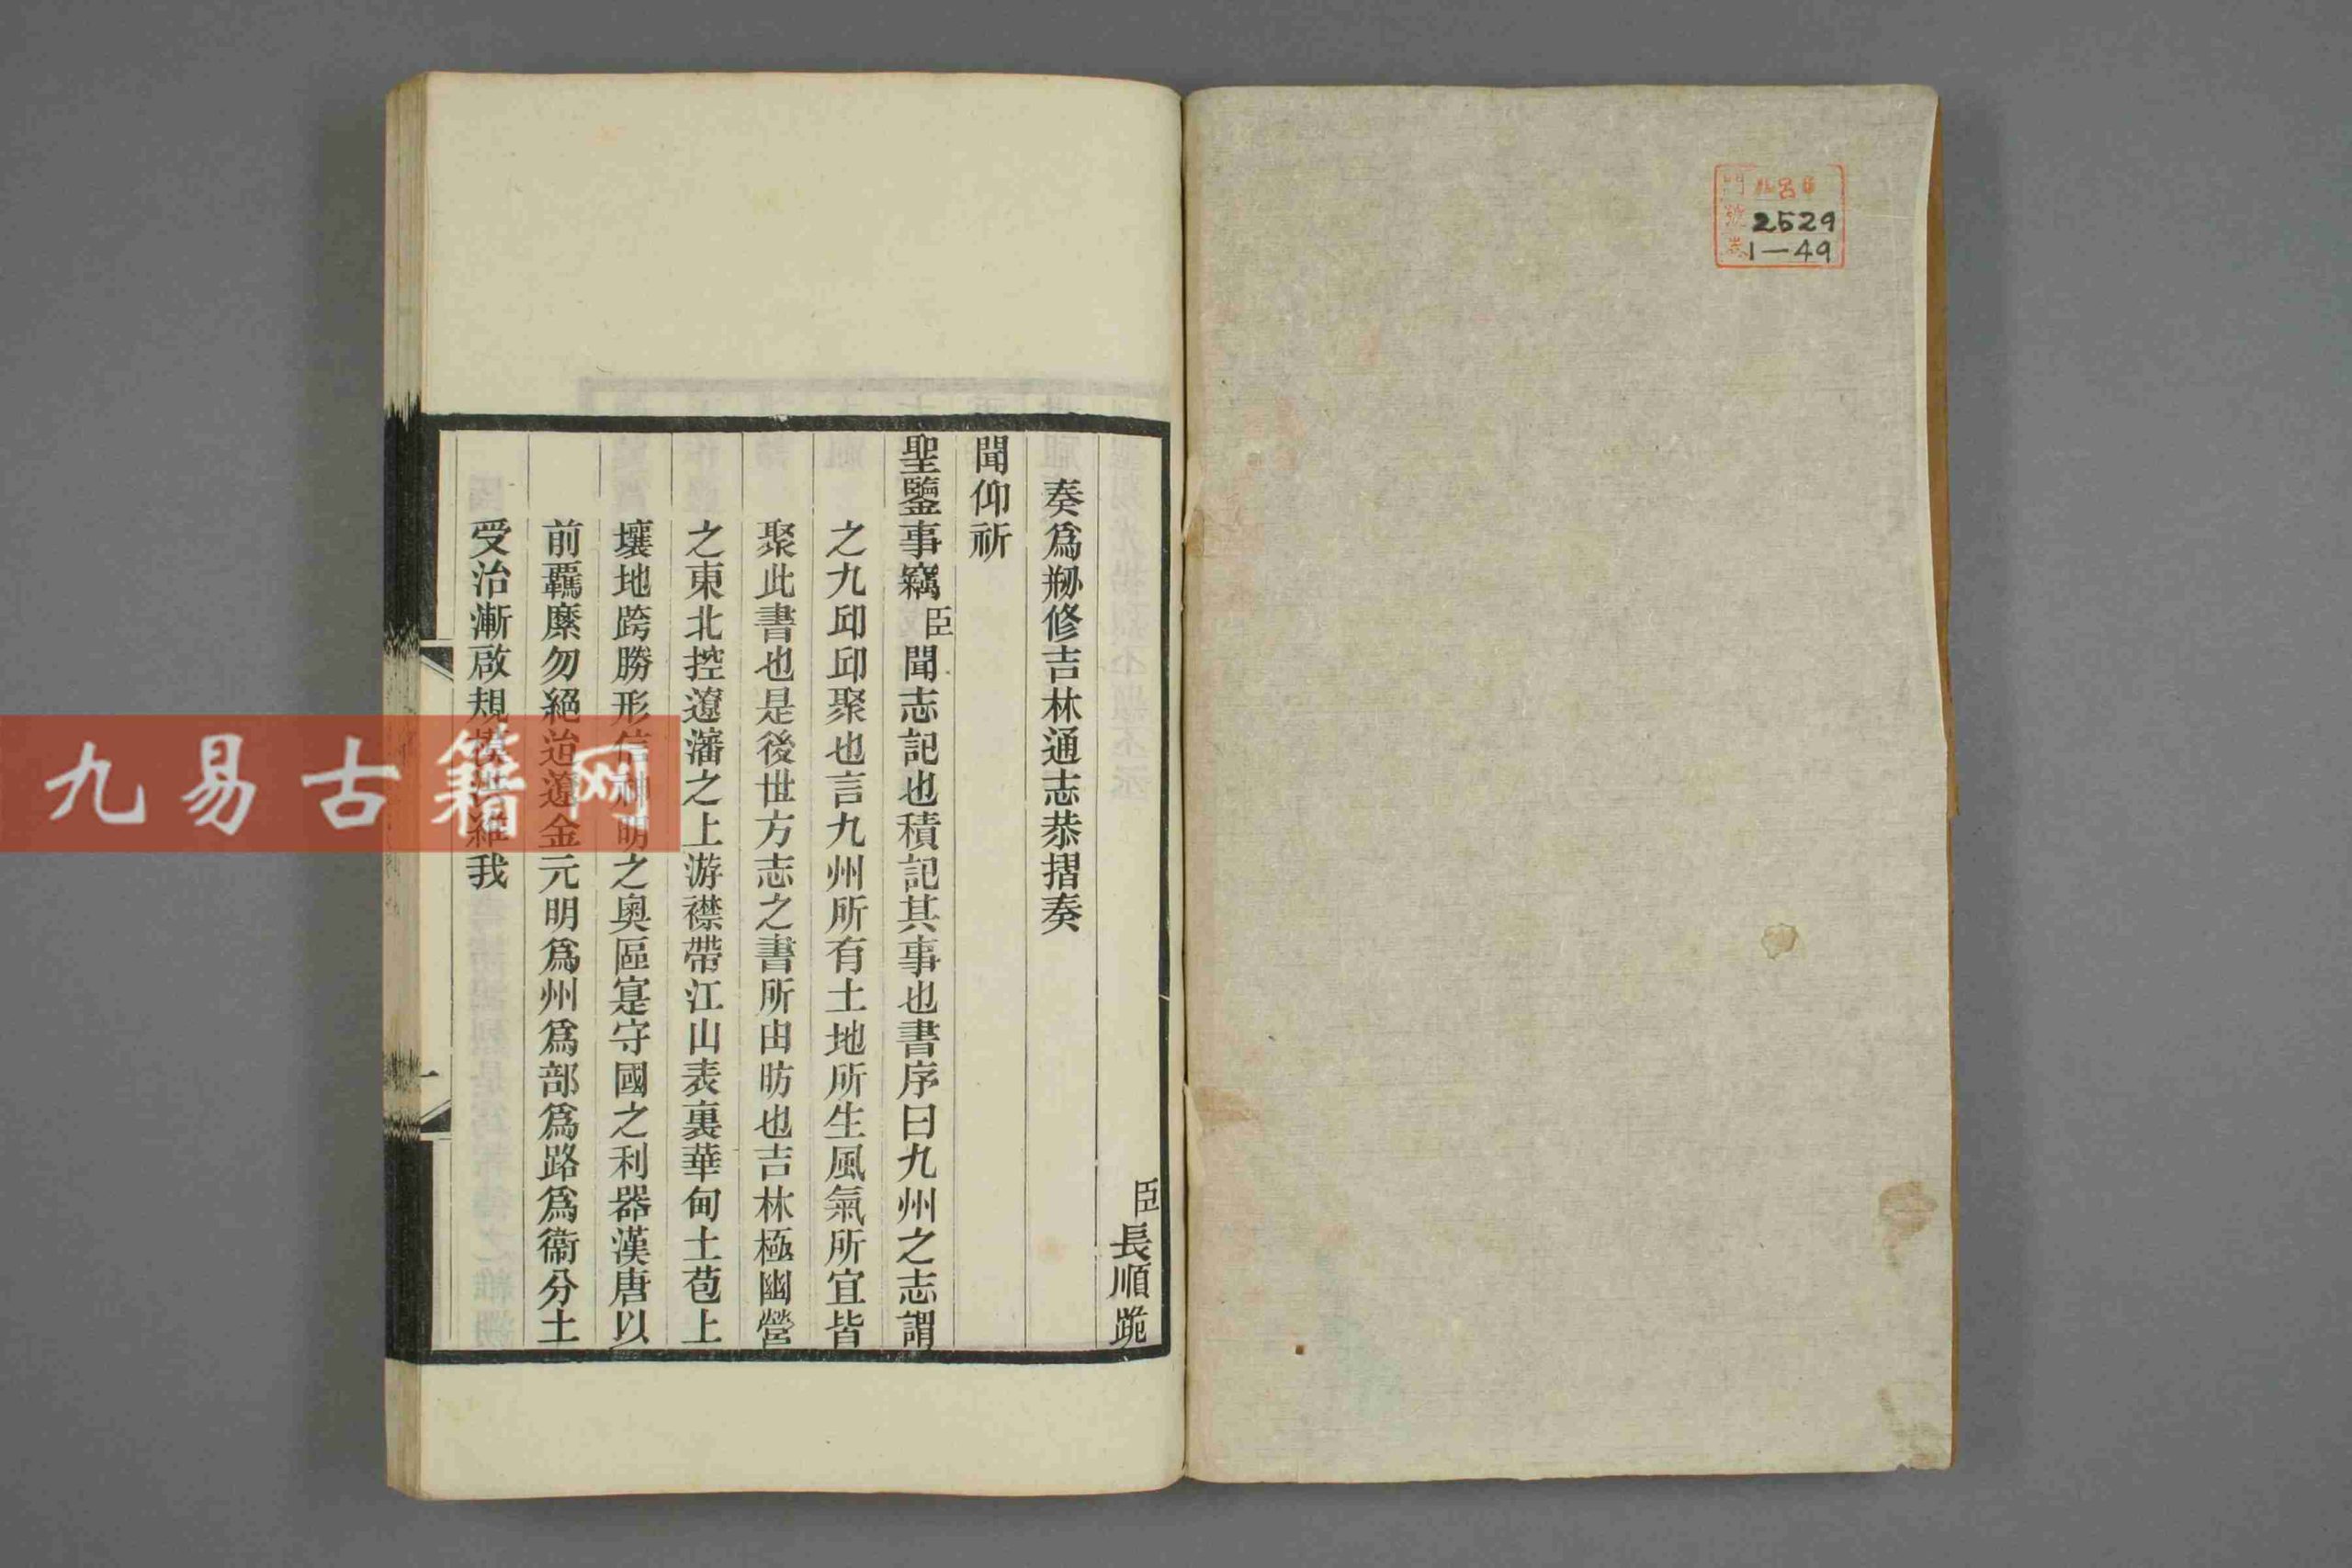 2529
1—49
臣長順跪
奏爲刱修吉林通志恭摺奏
聞仰祈
聖鑒事竊臣聞志記也積記其事也書序曰九州之志謂
之九邱邱聚也言九州所有土地所生風氣所宜皆
聚此書也是後世方志之書所由昉也吉林極幽營
之東北控遼瀋之上游襟帶江山表裏華甸土苞上
壤地跨勝形信神明之奧區寔守國之利器漢唐以
前覊縻勿絕迨遼金元明爲州爲部爲路爲衞分土
受治漸啟規維我
一
九易古籍网